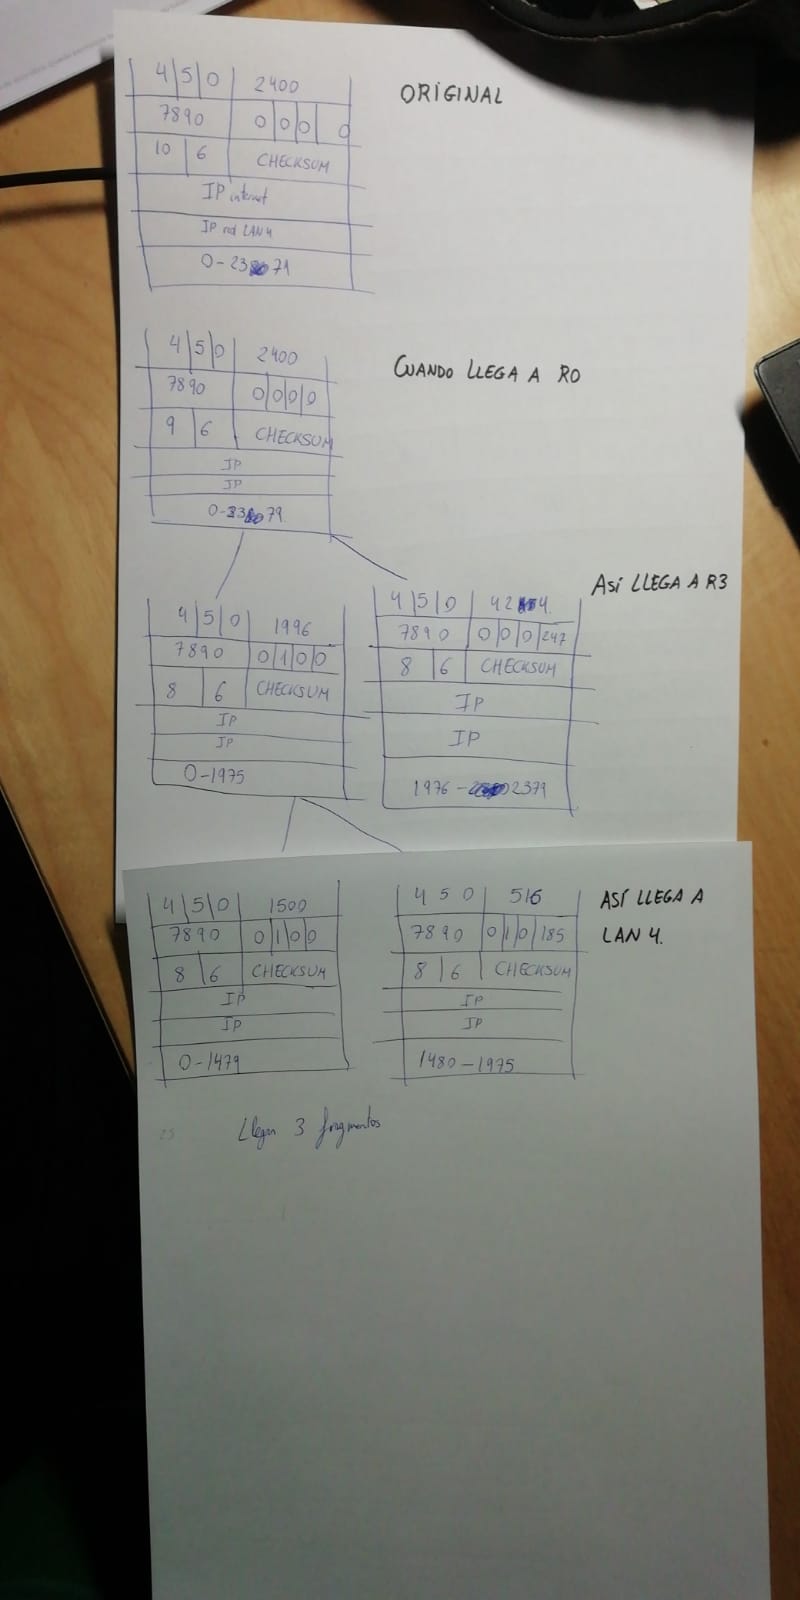 4 5 0 2400
ORIGINAL
7890 0 0 0 0
10 6 CHECKSUM
IP internet
IP red LAN 4
0-2379
4 5 0 2400
CUANDO LLEGA A R0
7890 0 0 0 0
9 6 CHECKSUM
IP
IP
0-2379
ASÍ LLEGA A R3
4 5 0 1996
7890 0 1 0 0
8 6 CHECKSUM
IP
IP
0-1975
4 5 0 424
7890 0 0 0 247
8 6 CHECKSUM
IP
IP
1976-2379
4 5 0 1500
7890 0 1 0 0
8 6 CHECKSUM
IP
IP
0-1479
4 5 0 516
7890 0 1 0 185
8 6 CHECKSUM
IP
IP
1480-1975
ASÍ LLEGA A
LAN 4.
Llegan 3 fragmentos